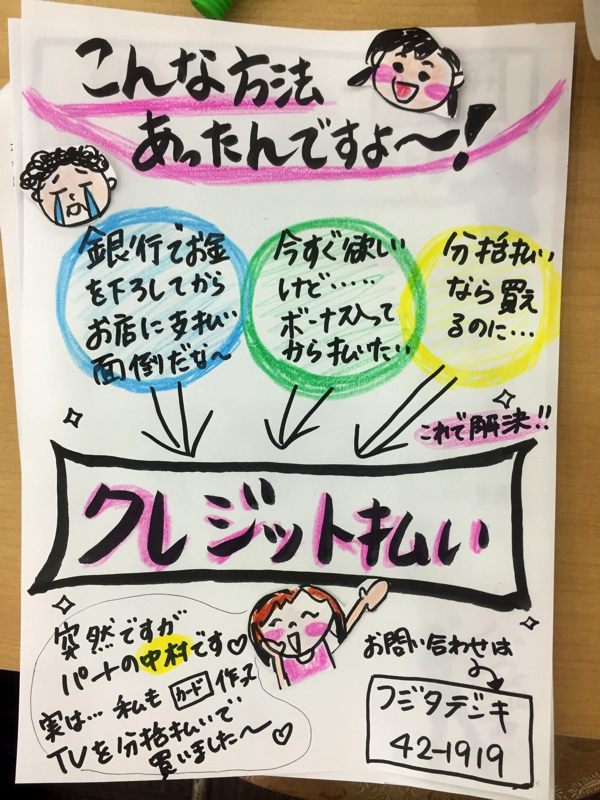 こんな方法
あったんですよ〜!
銀行でお金
を下ろしてから
お店に支払い
面倒だな〜
今すぐ欲しい
けど……
ボーナス入って
から払いたい
分括払い
なら買え
るのに…
これで解決!!
クレジット払い
突然ですが
パートの中村です♡
実は… 私も カード 作って
TVを分括払いで
買いました〜♡
お問い合わせは
フジタデンキ
42-1919